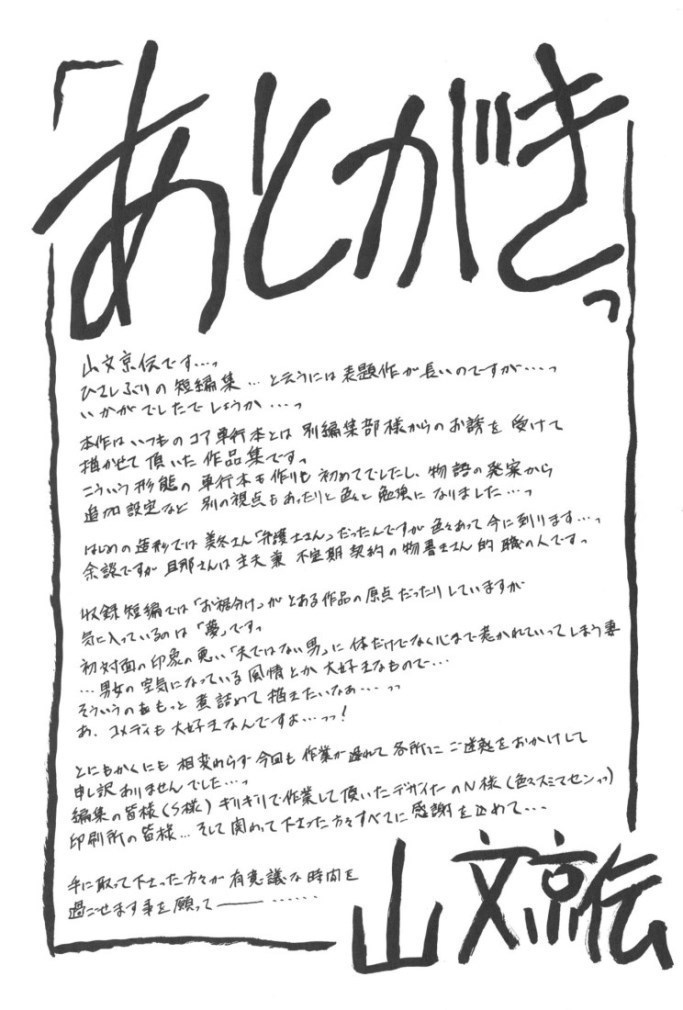 「あとがきっ
山文京伝です…っ
ひさしぶりの短編集…と云うには表題作が長いのですが…っ
いかがでしたでしょうか…っ
本作はいつものコア単行本とは別編集部様からのお誘を受けて
描かせて頂いた作品集ですっ
こういう形態の単行本も作りも初めてでしたし、物語の発案から
追加設定など別の視点もあったりと色々と勉強になりました…っ
はじめの造形では美冬さん「弁護士さん」だったんですが色々あって今に到ります…っ
余談ですが旦那さんは主夫兼不定期契約の物書きさん的職の人ですっ
収録短編では「お裾分け」がとある作品の原点だったりしていますが
気に入っているのは「夢」ですっ
初対面の印象の悪い「夫ではない男」に体だけでなく心まで惹かれていってしまう妻
…男女の空気になっている風情とか大好きなもので…
そういうのをもっと煮詰めて描きたいなぁ…っっ
あ、コメディも大好きなんですよ…っっ!
とにもかくにも相変わらず今回も作業が遅れて各所にご迷惑をおかけして
申し訳ありませんでした…っ
編集の皆様(S様)ギリギリで作業して頂いたデザイナーのN様(色々スミマセンっ)
印刷所の皆様…そして関わって下さった方々すべてに感謝を込めて…
手に取って下さった方々が有意議な時間を
過ごせます事を願って――……
山文京伝